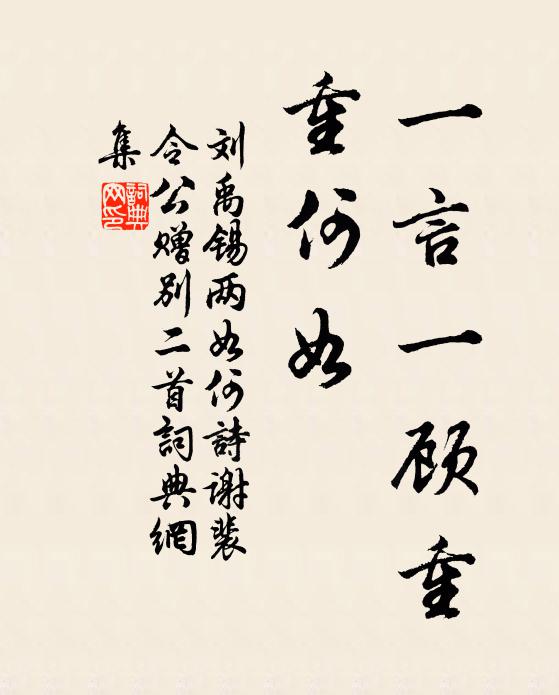 一言一顾重
重何如
刘禹锡两如何詩谢裴
令公赠别二首詞典網
集
詞典網印